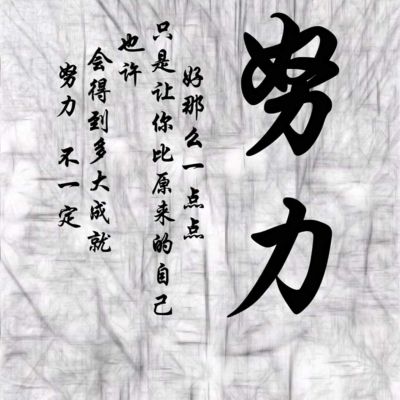 努力
努力 不一定
会得到多大成就
也许
只是让你比原来的自己
好那么一点点